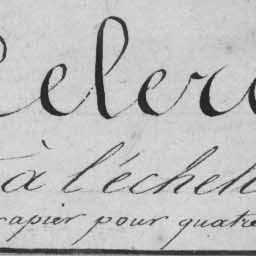 Celer
à l'échell
rapier pour quatre